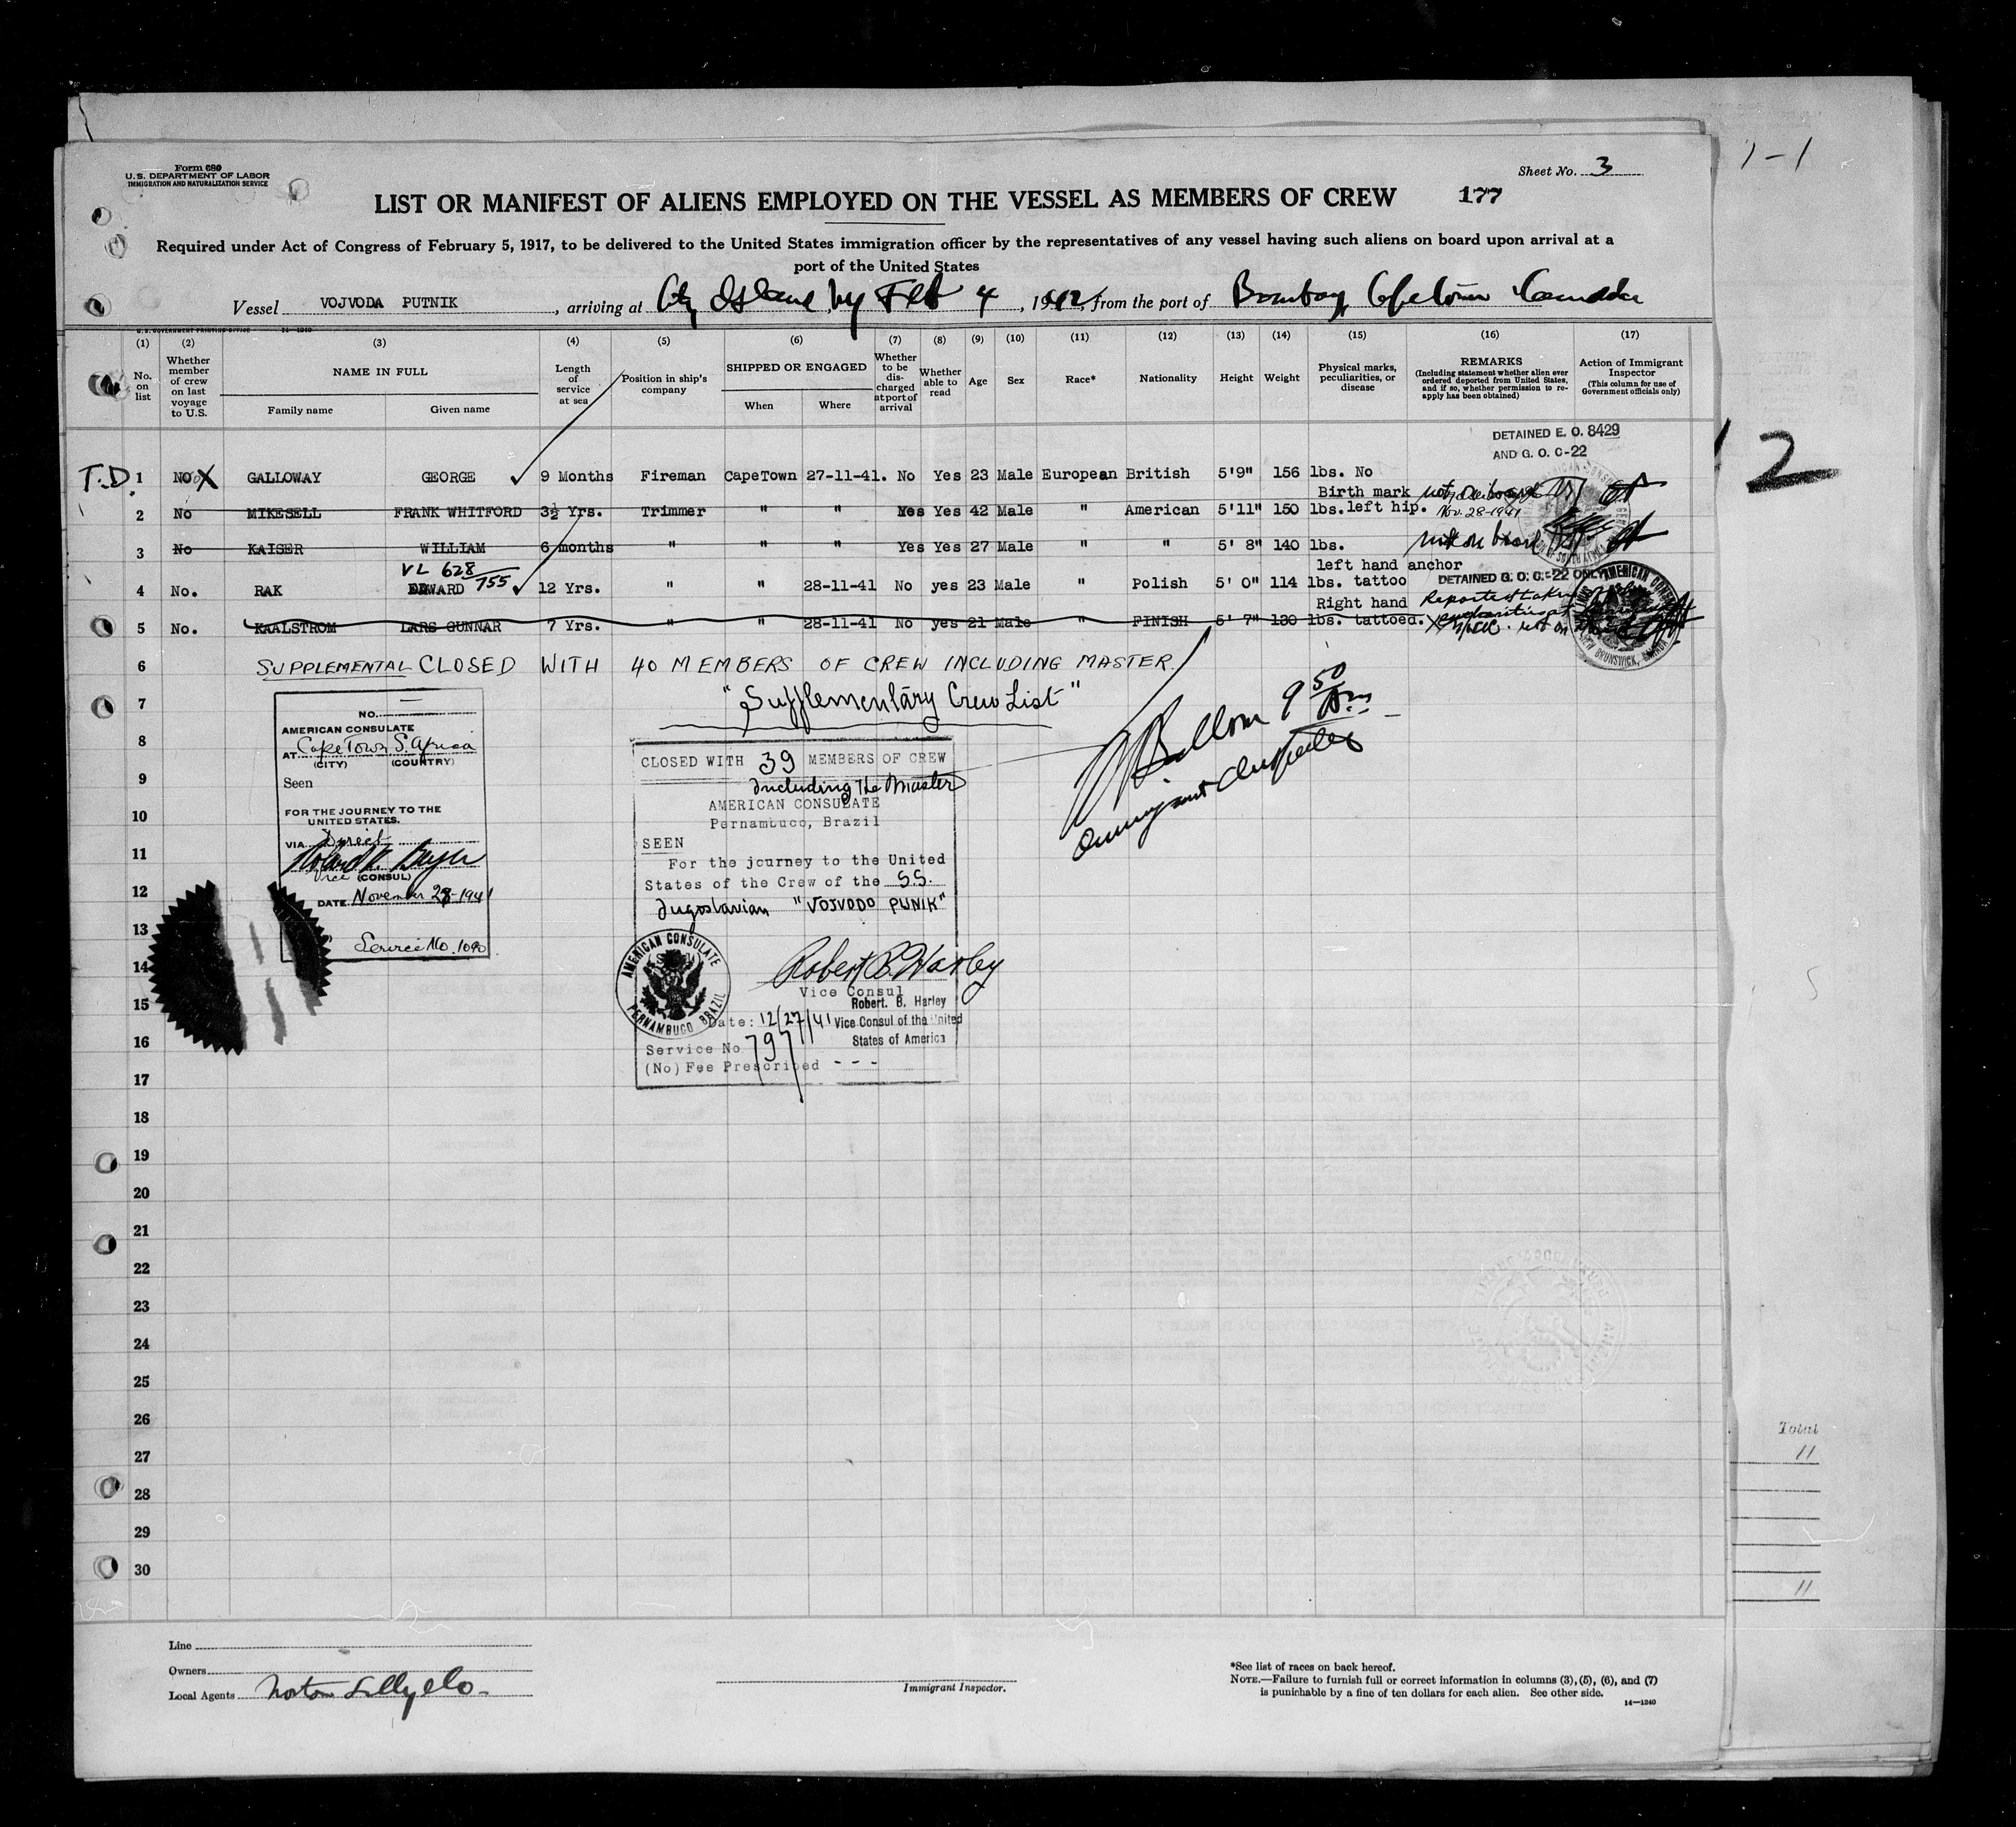 Form 680
U.S. DEPARTMENT OF LABOR
IMMIGRATION AND NATURALIZATION SERVICE
Sheet No. 3
LIST OR MANIFEST OF ALIENS EMPLOYED ON THE VESSEL AS MEMBERS OF CREW 177
Required under Act of Congress of February 5, 1917, to be delivered to the United States immigration officer by the representatives of any vessel having such aliens on board upon arrival at a
port of the United States
Vessel VOJVODA PUTNIK, arriving at City Island, ny Feb 4, 1942, from the port of Bombay, Capetown Canada
U.S. GOVERNMENT PRINTING OFFICE 14—1240
(1) (2) (3) (4) (5) (6) (7) (8) (9) (10) (11) (12) (13) (14) (15) (16) (17)
No. on list
Whether member of crew on last voyage to U.S.
NAME IN FULL
Family name Given name
Length of service at sea
Position in ship's company
SHIPPED OR ENGAGED
When Where
Whether to be discharged at port of arrival
Whether able to read
Age
Sex
Race*
Nationality
Height
Weight
Physical marks, peculiarities, or disease
REMARKS
(Including statement whether alien ever ordered deported from United States, and if so, whether permission to reapply has been obtained)
Action of Immigrant Inspector
(This column for use of Government officials only)
DETAINED E. O. 8429
AND G. O. C-22
T.D. 1 NO X GALLOWAY GEORGE 9 Months Fireman CapeTown 27-11-41. No Yes 23 Male European British 5'9" 156 lbs. No
Birth mark not on board
2 No MIKESELL FRANK WHITFORD 3½ Yrs. Trimmer " " Yes Yes 42 Male " American 5'11" 150 lbs. left hip. Nov. 28-1941
3 No KAISER WILLIAM 6 months " " " Yes Yes 27 Male " " 5' 8" 140 lbs. not on board
VL 628/755
left hand anchor
4 No. RAK EDWARD 12 Yrs. " " 28-11-41 No yes 23 Male " Polish 5' 0" 114 lbs. tattoo DETAINED G. O. C-22 ONLY
Right hand Reported taken
5 No. KAALSTROM LARS GUNNAR 7 Yrs. " " 28-11-41 No yes 21 Male " FINISH 5' 7" 130 lbs. tattoed. not on
AMERICAN CONSULATE NEW BRUNSWICK, CANADA
6 SUPPLEMENTAL CLOSED WITH 40 MEMBERS OF CREW INCLUDING MASTER.
7 "Supplementary Crew List"
8
9
10
11
12
13
14
15
16
17
18
19
20
21
22
23
24
25
26
27
28
29
30
NO.
AMERICAN CONSULATE
AT Cape Town S. Africa
(CITY) (COUNTRY)
Seen
FOR THE JOURNEY TO THE
UNITED STATES.
VIA Direct
Vice (CONSUL)
DATE November 28-1941
Service No. 1090
CLOSED WITH 39 MEMBERS OF CREW
Including The Master
AMERICAN CONSULATE
Pernambuco, Brazil
SEEN
For the journey to the United
States of the Crew of the S.S.
Jugoslavian "VOJVODO PUNIK"
AMERICAN CONSULATE
PERNAMBUCO BRAZIL
Robert B. Harley
Vice Consul
Robert. B. Harley
Date: 12/27/41 Vice Consul of the United
States of America
Service No 797
(No) Fee Prescribed - - -
9 50
Immigrant Inspector
1-1
2
Total
11
11
Line
Owners
Local Agents Norton Lilly & Co.
Immigrant Inspector.
*See list of races on back hereof.
NOTE.—Failure to furnish full or correct information in columns (3), (5), (6), and (7)
is punishable by a fine of ten dollars for each alien. See other side.
14—1240